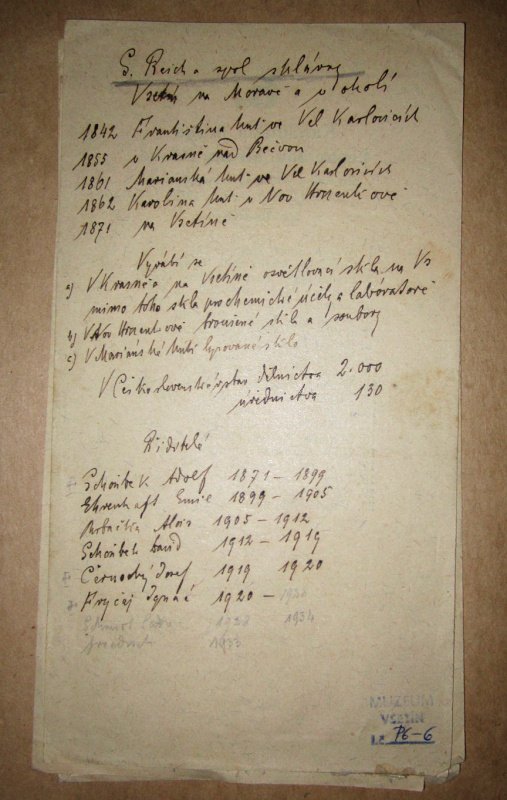 S. Reich a spol sklárny
Vsetín na Moravě a v okolí
1842 Františtina hut ve Vel Karlovicích
1855 v Krásně nad Bečvou
1861 Marianská hut ve Vel Karlovicích
1862 Karolina hut v Nov Hrozenkově
1871 na Vsetíně
Vyrábí se
a) V Krásně a na Vsetíně osvětlovací skla na Vs
mimo toho skla pro chemické účely a laboratoře
b) V Nov Hrozenkově broušené skla a soubory
c) V Mariánské huti lysované sklo
V Československé dělnictva 2.000
úřednictva 130
Ředitelé
Schönbek Adolf 1871 – 1899
Ehrenhaft Emil 1899 – 1905
Alois 1905 – 1912
Schönbek David 1912 – 1919
Černocký Josef 1919 1920
Fryčaj Ignác 1920 –
1928 1934
1933
MUZEUM
VSETÍN
P6-6